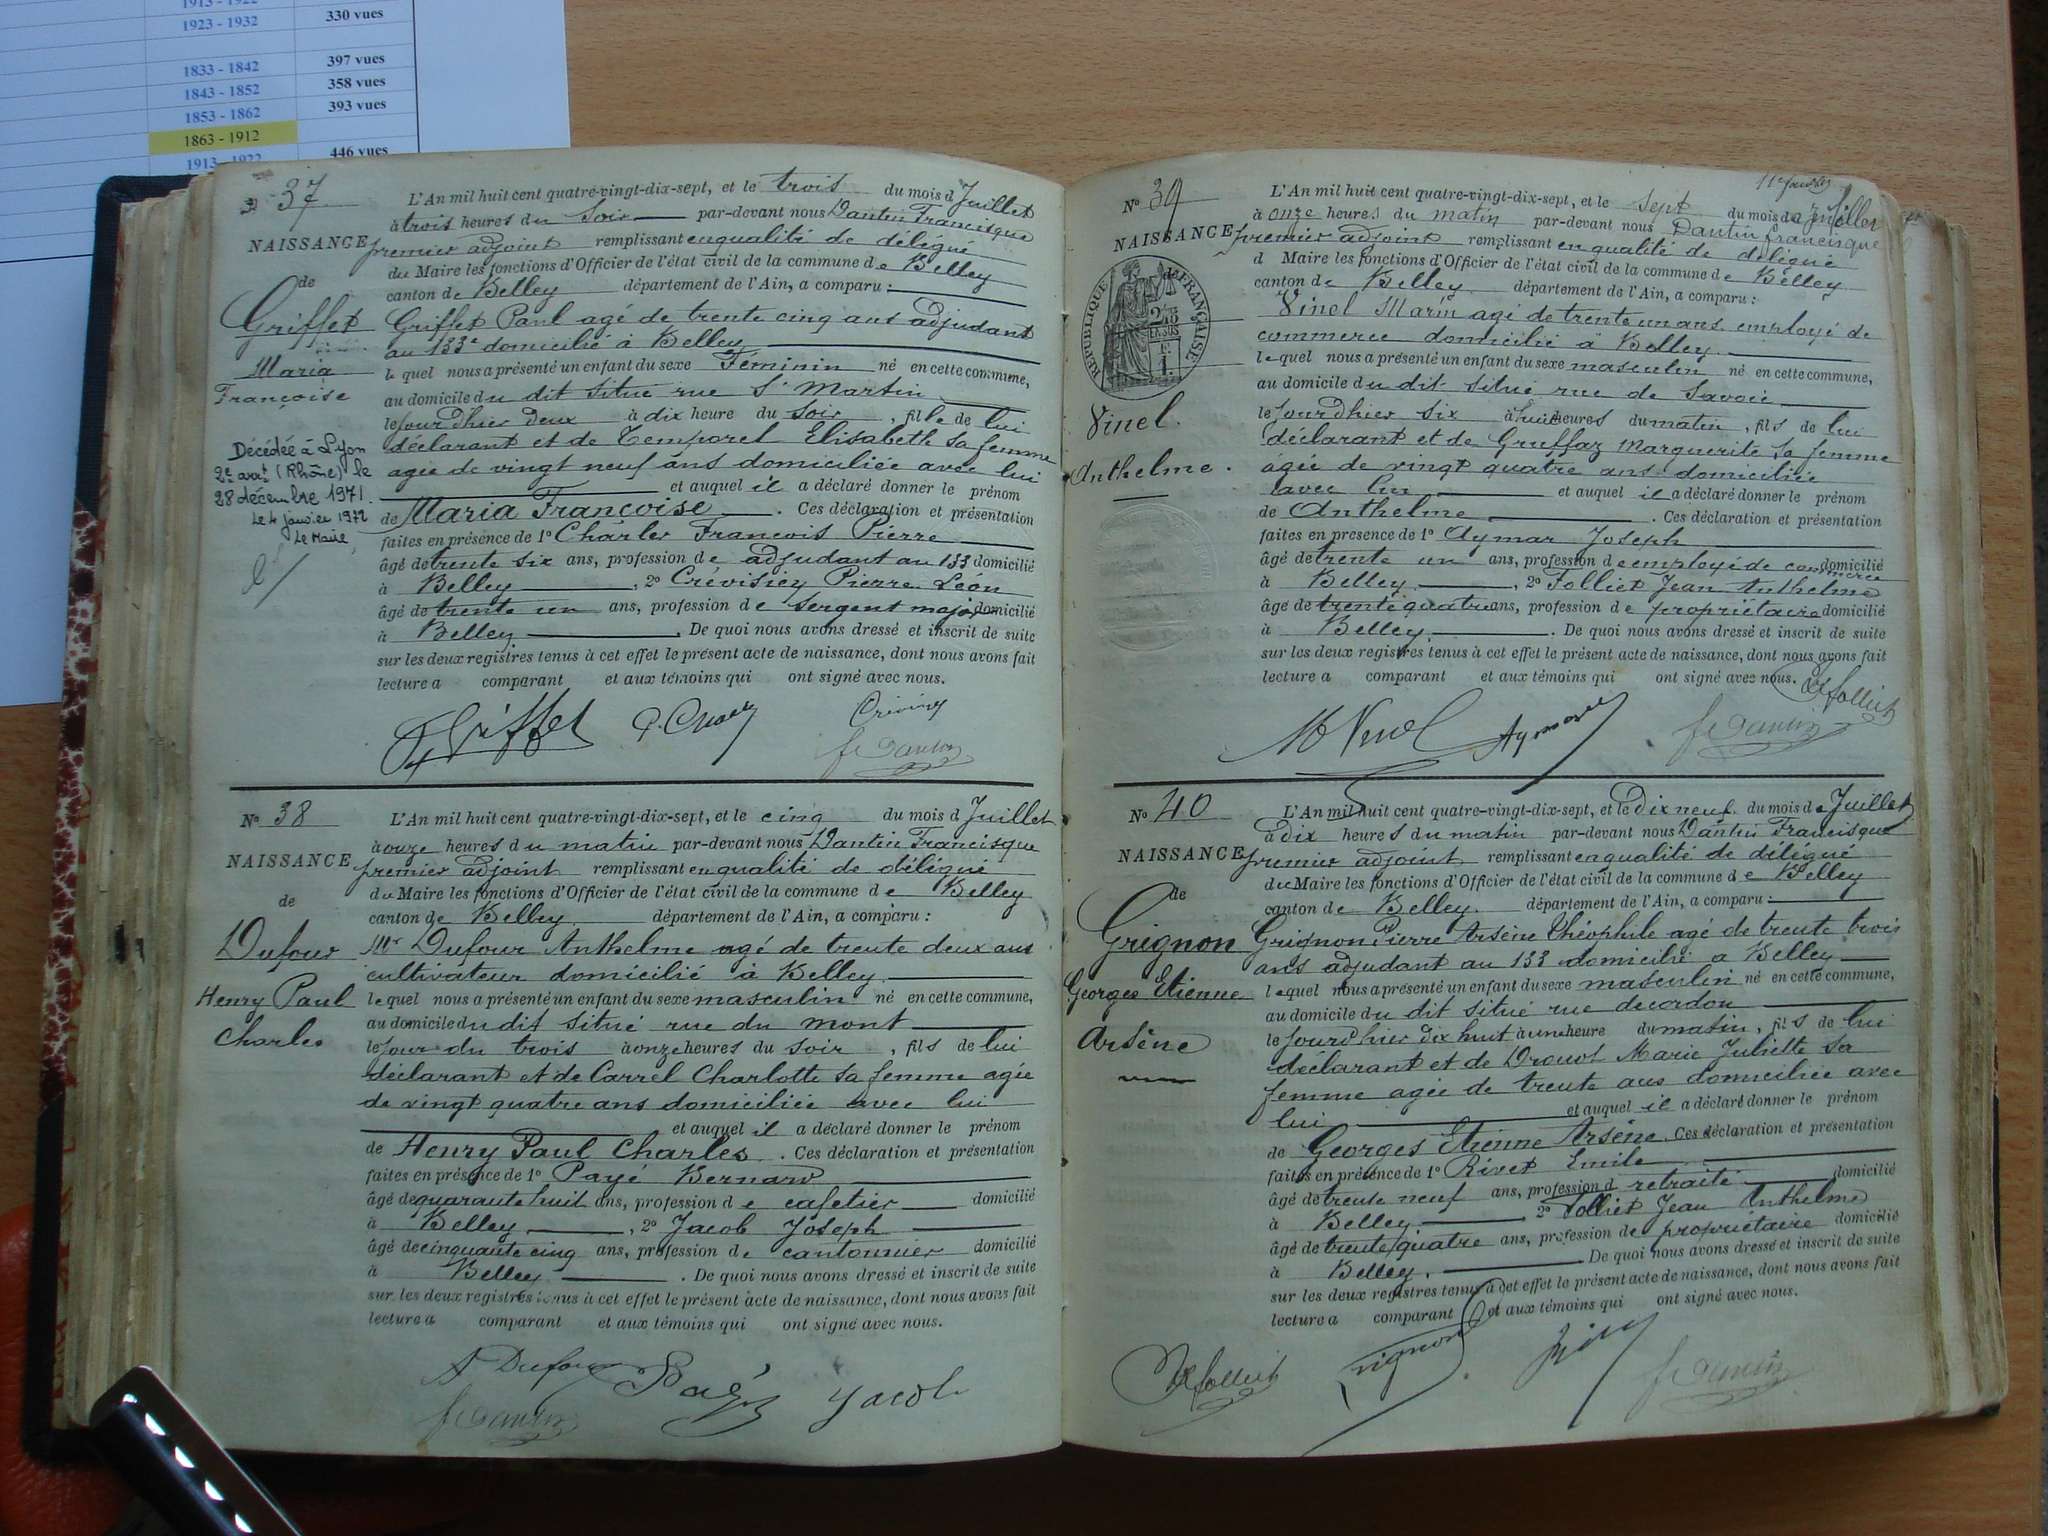 1923 - 1932 330 vues
1833 - 1842 397 vues
1843 - 1852 358 vues
1853 - 1862 393 vues
1863 - 1912
1913 - 1922 446 vues
37
L'An mil huit cent quatre-vingt-dix-sept, et le trois du mois d Juillet
à trois heures du soir par-devant nous Dantin Francisque
NAISSANCE premier adjoint remplissant en qualité de délégué
du Maire les fonctions d'Officier de l'état civil de la commune de Belley
de
canton de Belley département de l'Ain, a comparu :
Griffet Griffet Paul agé de trente cinq ans adjudant
au 133e domicilié à Belley
Maria lequel nous a présenté un enfant du sexe Féminin né en cette commune,
Françoise au domicile du dit situé rue St Martin
le jour d'hier deux à dix heure du soir, fille de lui
déclarant et de Temporel Elisabeth sa femme
agée de vingt neuf ans domiciliée avec lui
Décédée à Lyon
2e arrt (Rhône) le
28 décembre 1971.
Le 4 janvier 1972
Le Maire
et auquel il a déclaré donner le prénom
de Maria Françoise. Ces déclaration et présentation
faites en présence de 1o Charles Francois Pierre
âgé de trente six ans, profession de adjudant au 133 domicilié
à Belley, 2o Crévisiey Pierre Léon
âgé de trente un ans, profession de Sergent major domicilié
à Belley. De quoi nous avons dressé et inscrit de suite
sur les deux registres tenus à cet effet le présent acte de naissance, dont nous avons fait
lecture a comparant et aux témoins qui ont signé avec nous.
Griffet
f Dantin
No 38
L'An mil huit cent quatre-vingt-dix-sept, et le cinq du mois d Juillet
à onze heures du matin par-devant nous Dantin Francisque
NAISSANCE premier adjoint remplissant en qualité de délégué
du Maire les fonctions d'Officier de l'état civil de la commune de Belley
de
canton de Belley département de l'Ain, a comparu :
Dufour Mr Dufour Anthelme agé de trente deux ans
cultivateur domicilié à Belley
Henry Paul lequel nous a présenté un enfant du sexe masculin né en cette commune,
Charles au domicile du dit situé rue du mont
le jour du trois à onze heures du soir, fils de lui
déclarant et de Carrel Charlotte sa femme agée
de vingt quatre ans domiciliée avec lui
et auquel il a déclaré donner le prénom
de Henry Paul Charles. Ces déclaration et présentation
faites en présence de 1o Payé Bernard
âgé de quarante huit ans, profession de cafetier domicilié
à Belley, 2o Jacob Joseph
âgé de cinquante cinq ans, profession de cantonnier domicilié
à Belley. De quoi nous avons dressé et inscrit de suite
sur les deux registres tenus à cet effet le présent acte de naissance, dont nous avons fait
lecture a comparant et aux témoins qui ont signé avec nous.
A Dufour Payé Jacob
f Dantin
No 39
L'An mil huit cent quatre-vingt-dix-sept, et le sept du mois de Juillet
à onze heures du matin par-devant nous Dantin francisque
NAISSANCE premier adjoint remplissant en qualité de délégué
d Maire les fonctions d'Officier de l'état civil de la commune de Belley
canton de Belley département de l'Ain, a comparu :
REPUBLIQUE FRANÇAISE
2/10
EN SUS
Vinel Marin agé de trente un ans employé de
commerce domicilié à Belley
lequel nous a présenté un enfant du sexe masculin né en cette commune,
au domicile du dit situé rue de Savoie
Vinel. le jour d'hier six à huit heures du matin, fils de lui
déclarant et de Gruffaz Marguerite sa femme
Anthelme. âgée de vingt quatre ans domiciliée
avec lui et auquel il a déclaré donner le prénom
de Anthelme. Ces déclaration et présentation
faites en présence de 1o Aymar Joseph
âgé de trente un ans, profession de employé de commerce domicilié
à Belley, 2o Folliet Jean Anthelme
âgé de trente quatre ans, profession de propriétaire domicilié
à Belley. De quoi nous avons dressé et inscrit de suite
sur les deux registres tenus à cet effet le présent acte de naissance, dont nous avons fait
lecture a comparant et aux témoins qui ont signé avec nous.
folliet
M Vinel
f Dantin
No 40
L'An mil huit cent quatre-vingt-dix-sept, et le dix neuf du mois de Juillet
à dix heures du matin par-devant nous Dantin Francisque
NAISSANCE premier adjoint remplissant en qualité de délégué
du Maire les fonctions d'Officier de l'état civil de la commune de Belley
de
canton de Belley département de l'Ain, a comparu :
Grignon Grignon Pierre Arsène Théophile agé de trente trois
ans adjudant au 133 domicilié à Belley
Georges Etienne lequel nous a présenté un enfant du sexe masculin né en cette commune,
au domicile du dit situé rue de cordon
Arsène le jour d'hier dix huit à une heure du matin, fils de lui
déclarant et de Drouot Marie Juliette sa
femme agée de trente ans domiciliée avec
lui et auquel il a déclaré donner le prénom
de Georges Etienne Arsène. Ces déclaration et présentation
faites en présence de 1o Rivet Emile
âgé de trente neuf ans, profession d retraité domicilié
à Belley 2o Folliet Jean Anthelme
âgé de trente quatre ans, profession de propriétaire domicilié
à Belley. De quoi nous avons dressé et inscrit de suite
sur les deux registres tenus à cet effet le présent acte de naissance, dont nous avons fait
lecture a comparant et aux témoins qui ont signé avec nous.
folliet Grignon
f Dantin